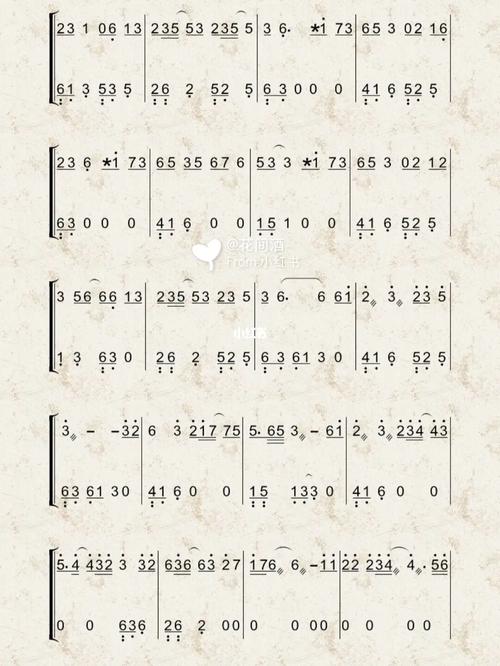 23 1 06 13 235 53 235 5 3 6· *1 73 65 3 02 16
61 3 53 5 26 2 52 5 63 0 0 0 41 6 52 5
23 6 *1 73 65 35 67 6 53 3 *1 73 65 3 02 12
63 0 0 0 41 6 0 0 15 1 0 0 41 6 52 5
@花间酒
From小红书
3 56 66 13 235 53 23 5 3 6· 6 61 2 3 23 5
小红书
1 3 63 0 26 2 52 5 63 61 3 0 41 6 52 5
3 – –32 6 3 217 75 5· 65 3 – 61 2 3 234 43
63 61 3 0 41 6 0 0 15 133 0 41 6 0 0
5·4 432 3 32 636 63 27 176 6 –11 22 234 4· 56
0 0 636 26 2 00 0 0 0 0 0 0 0 0